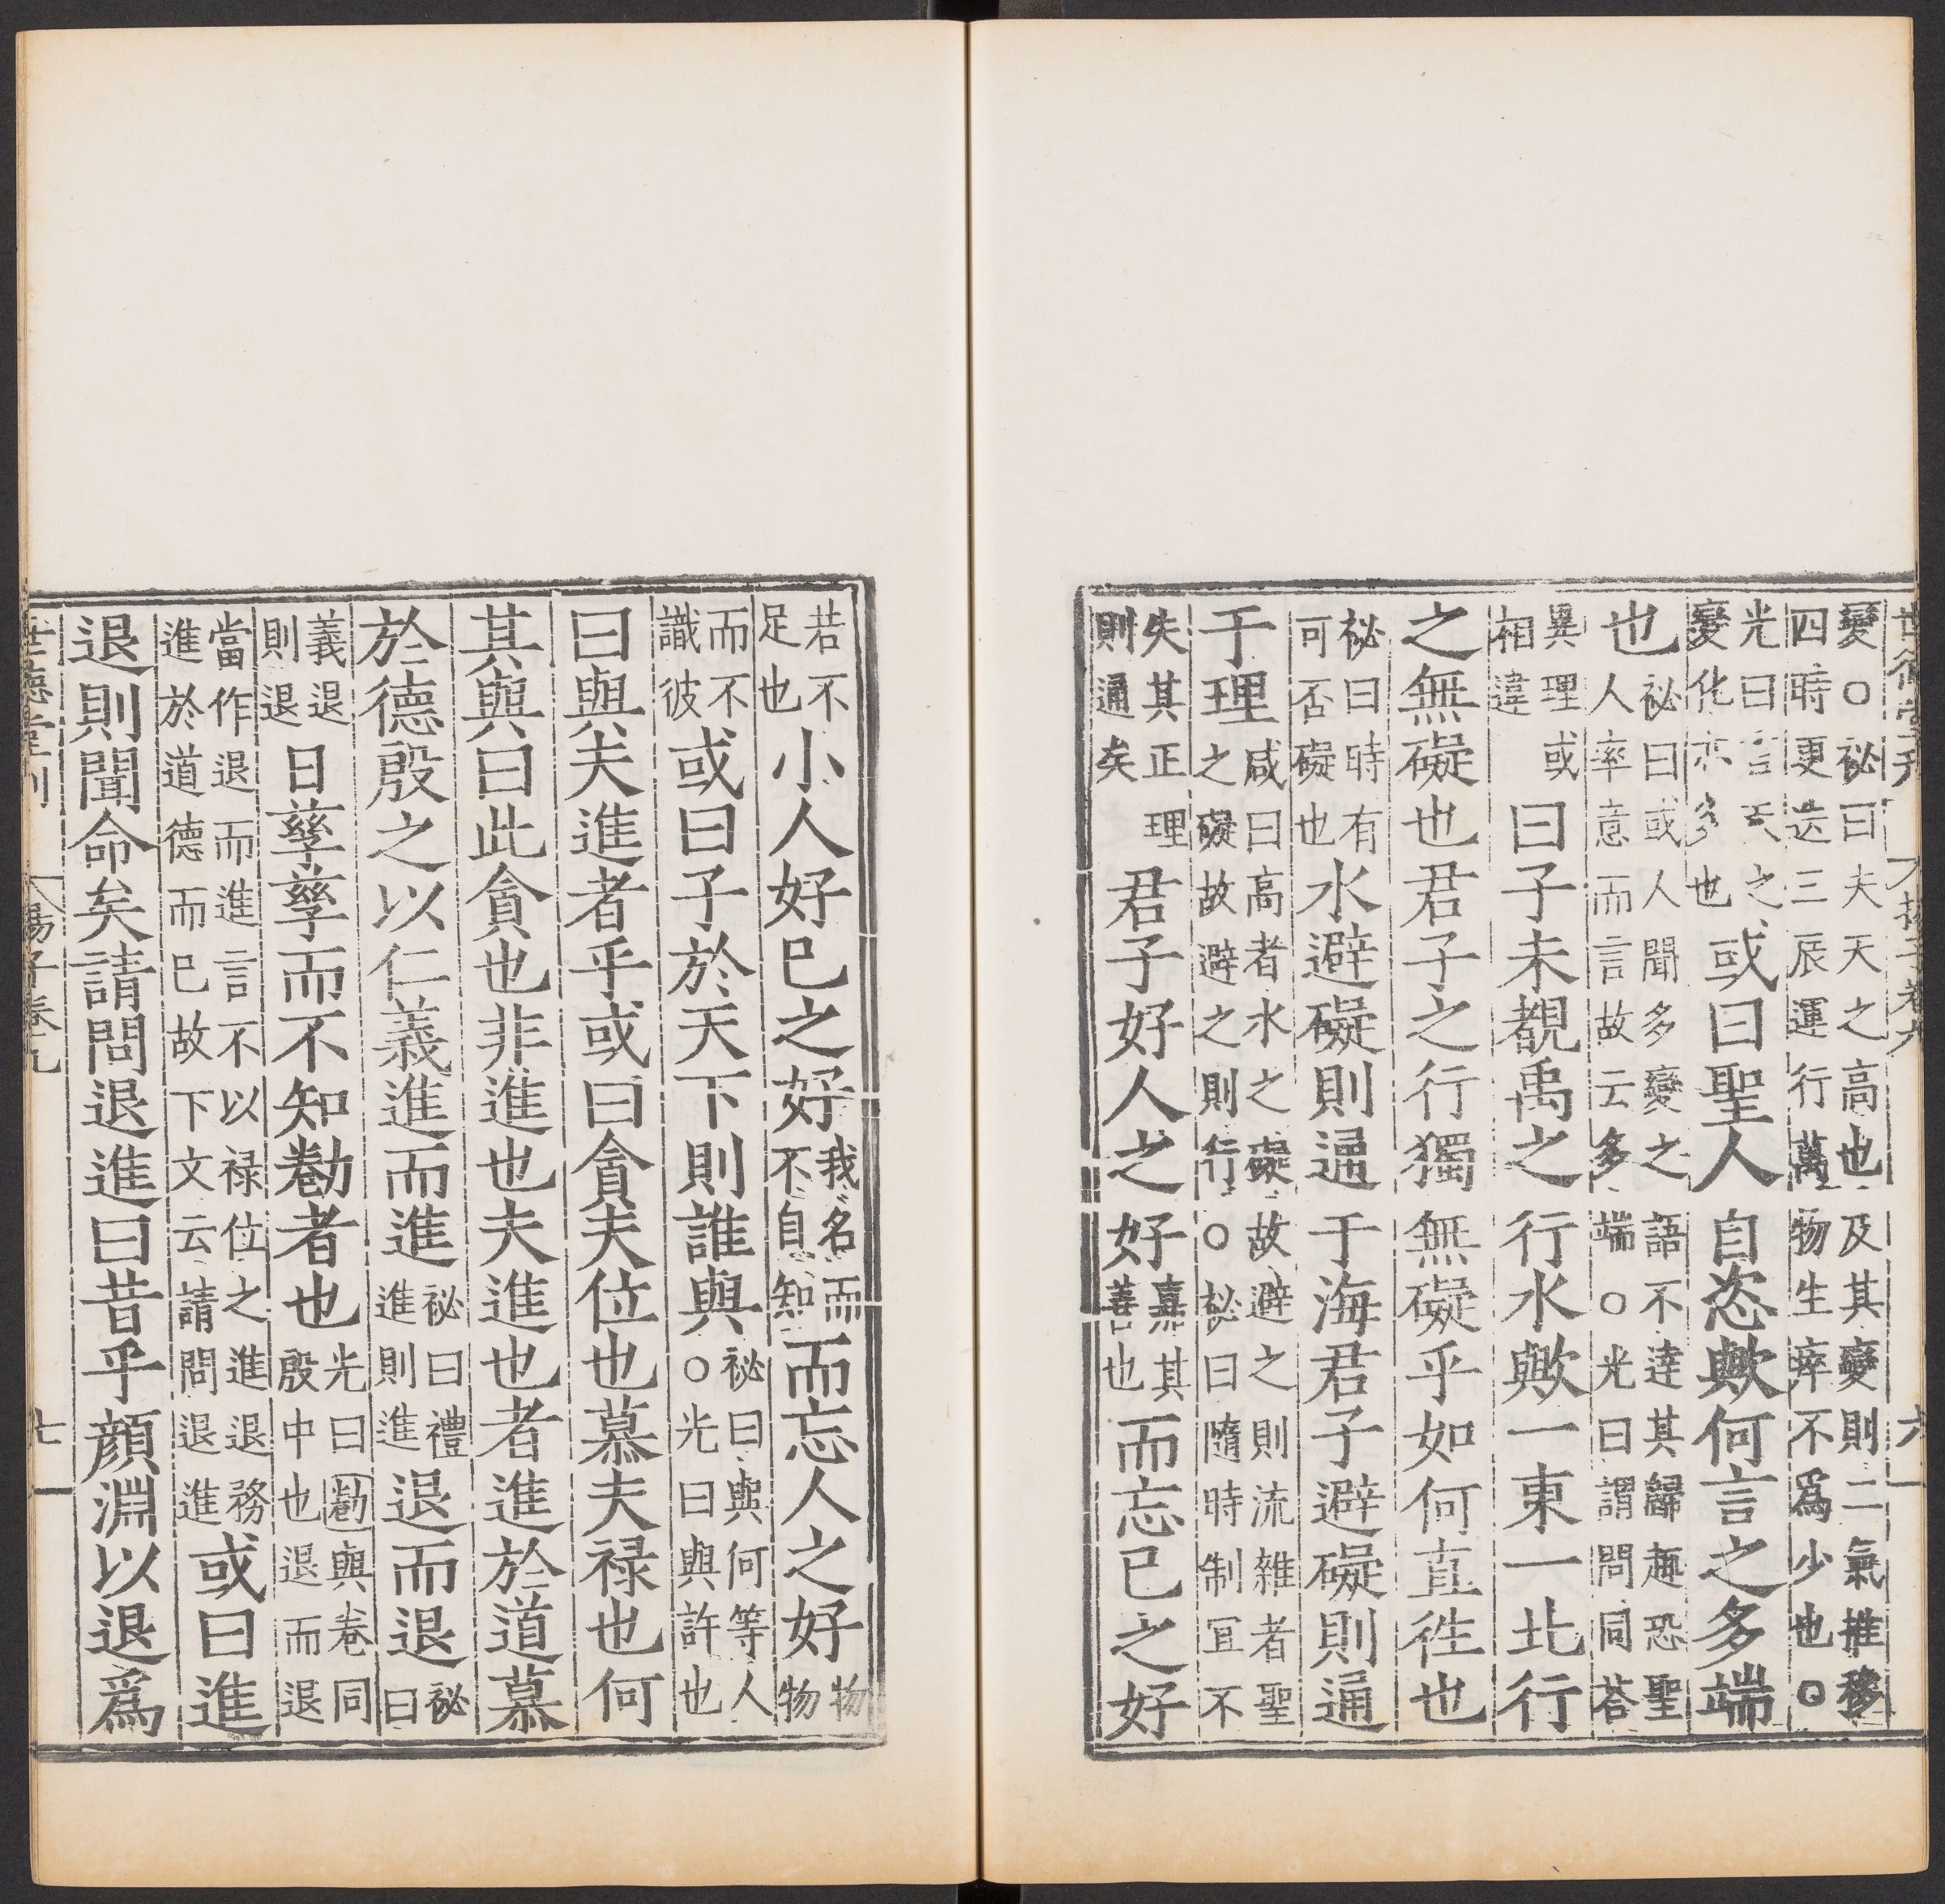 世德堂刊 揚子卷九 六
變○祕曰夫天之高也及其變則二氣推移四時更迭三辰運行萬物生瘁不爲少也○
光曰言天之變化亦多也或曰聖人自恣歟何言之多端
也祕曰或人聞多變之語不達其歸趣恐聖人率意而言故云多端○光曰謂問同荅
異理或相違曰子未覩禹之行水歟一東一北行
之無礙也君子之行獨無礙乎如何直徃也
祕曰時有可否礙也水避礙則通于海君子避礙則通
于理咸曰高者水之礙故避之則流雜者聖之礙故避之則行○祕曰隨時制冝不
失其正理則通矣君子好人之好嘉其善也而忘己之好
若不足也小人好己之好我名而不自知而忘人之好物物
而不識彼或曰子於天下則誰與祕曰與何等人○光曰與許也
曰與夫進者乎或曰貪夫位也慕夫禄也何
其與曰此貪也非進也夫進也者進於道慕
於德殷之以仁義進而進祕曰禮進則進退而退祕曰
義退則退日孳孳而不知勌者也光曰勌與卷同殷中也退而退
當作退而進言不以禄位之進退務進於道德而已故下文云請問退進或曰進
退則聞命矣請問退進曰昔乎顔淵以退爲
世德堂刊 揚子卷九 七